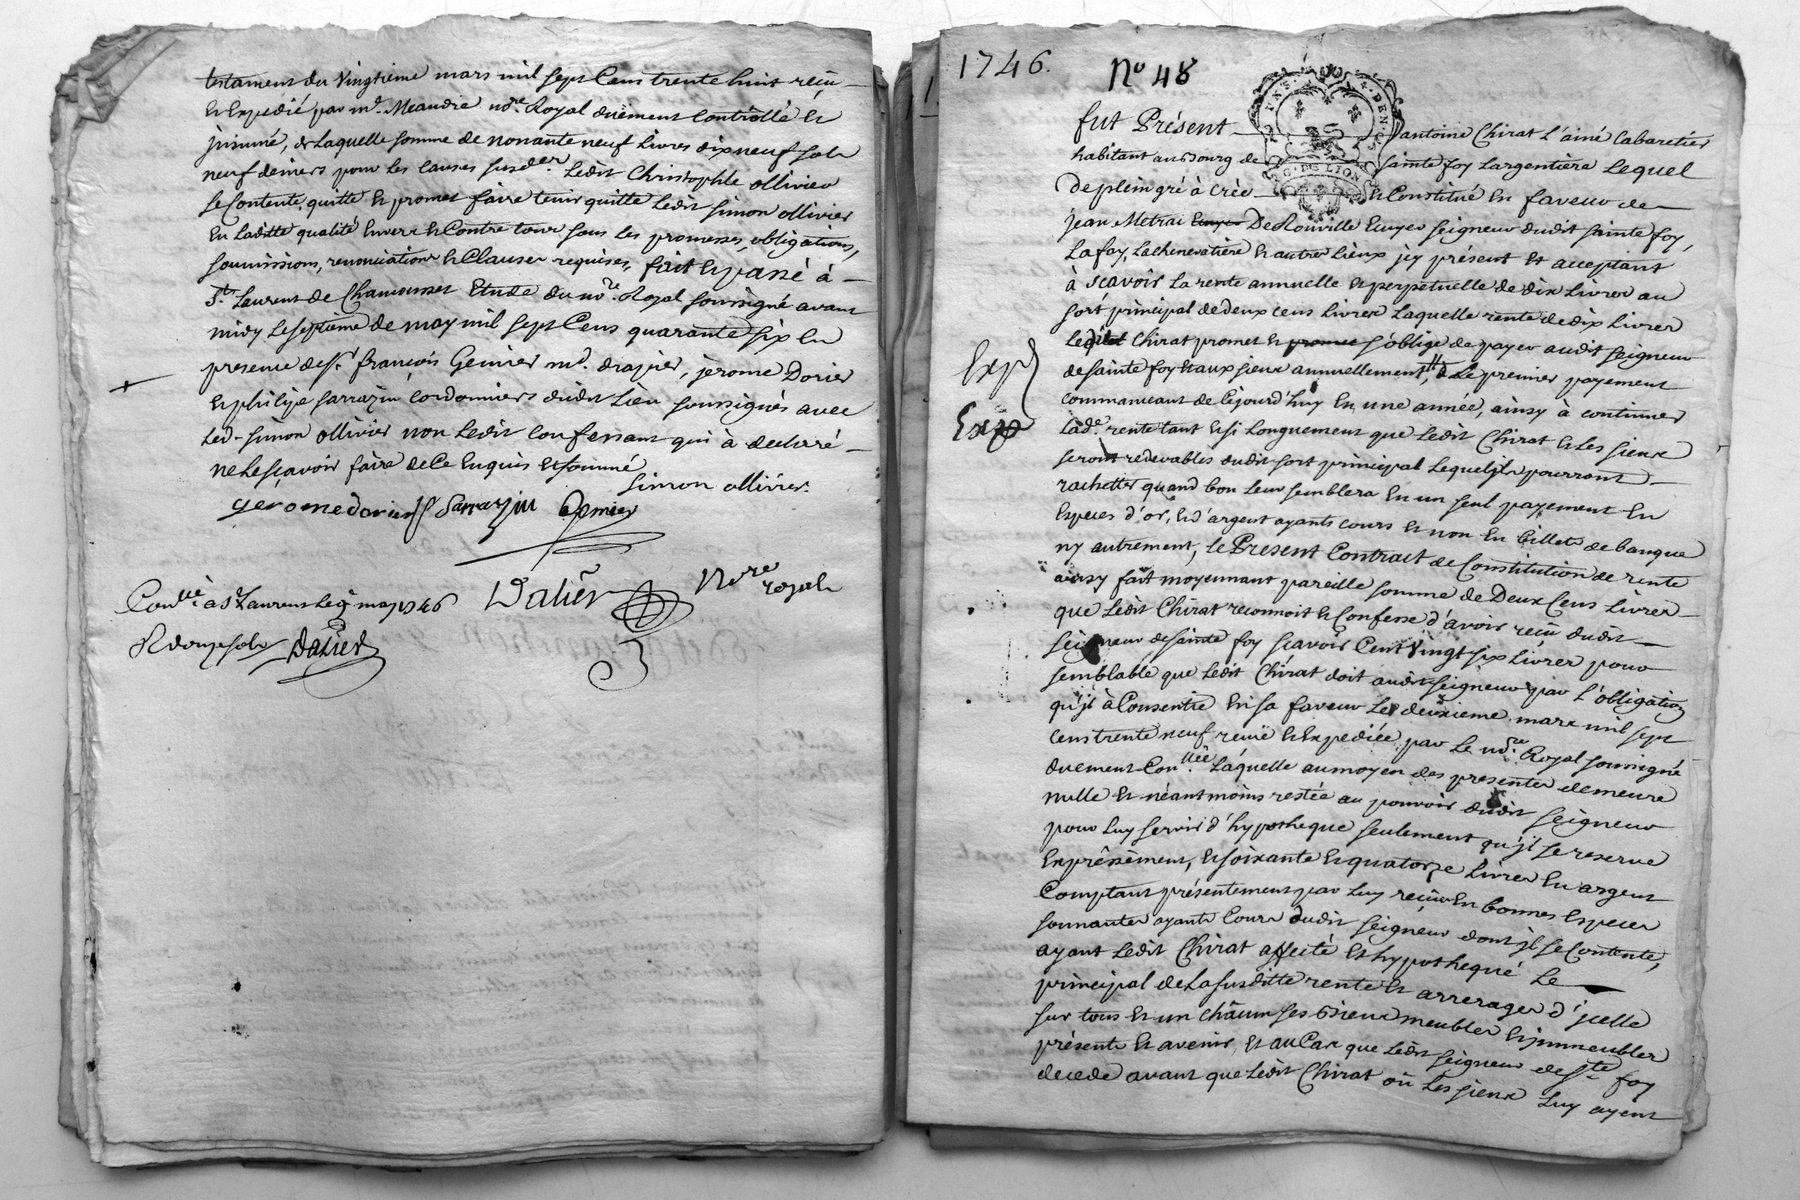 testament du vingtieme mars mil sept Cens trente huit reçu
et Expedié par me. Meandre nore. Royal düement Controllé et
jnsinué, de Laquelle somme de nonante neuf Livres dix neuf sols
neuf deniers pour les causes susdes. Ledit Christophle ollivier
se Contente, quitte et promet faire tenir quitte Ledit simon ollivier
En Laditte qualité Envers et Contre tous sous les promesses, obligations,
soumissions, renonciations et Clauses requises, fait et passé à
St. Laurent de Chamousset Etude du nore. Royal soussigné avant
midy Le septieme de may mil sept Cens quarante six En
presence de sr. françois Genier md. drapier, jerome Dorier
et philipe sarrazin cordonniers dudit Lieu soussignés avec
Led. simon ollivier non Ledit Confessant qui à declaré
ne Le sçavoir faire de Ce Enquis et sommé
simon ollivier.
gerome dorier P Sarrazin Genier
Dalier Nore royal
Conllé à St Laurens Le 9 may 1746
R douze sols Dalier
1746.
No 48
GEN. DE LION
fut Présent antoine Chirat L'ainé Cabaretier
habitant au Bourg de sainte foy Largentiere Lequel
De plein gré à Crée et Constitué En faveur de
jean Metrai Ecuyer De Rouville Ecuyer seigneur dudit sainte foy,
La fay, Lachenevatiere et autres Lieux jcy présent et acceptant
à scavoir La rente annuelle et perpetuelle de dix Livres au
sort principal de deux cens Livres Laquelle rente de dix Livres
Ledit Chirat promet et promet s'oblige de payer audit seigneur
de sainte foy et aux siens annuellement, Le premier payement
commancant de Cejourd'huy En une année, ainsy à continuer
Lade. rente tant et si Longuement que Ledit Chirat et Les siens
seront redevables dudit sort principal Lequel jls pourront
Exp
Exp
rachetter quand bon Leur semblera En un seul payement En
Especes d'or, et d'argent ayants cours et non En billets de banque
ny autrement, Le Présent Contract de Constitution de rente
ainsy fait moyennant pareille somme de Deux Cens Livres
que Ledit Chirat reconnoit et Confesse d'avoir reçu dudit
seigneur de sainte foy scavoir Cent Vingt six Livres pour
semblable que Ledit Chirat doit audit seigneur par L'obligation
qu'jl à Consentie En sa faveur Le deuxieme mars mil sept
Cens trente neuf reçue et Expediée par Le nore. Royal soussigné
duement Conllée Laquelle au moyen des presentes demeure
nulle et néantmoins restée au pouvoir dudit seigneur
pour Luy servir d'hypotheque seulement qu'jl se reserve
Expréssement, et soixante et quatorze Livres En argent
Comptant présentement par Luy reçu En bonnes Especes
sonnantes ayants Cours dudit seigneur dont jl se Contente,
ayant Ledit Chirat affecté et hypothequé Le
principal de La susditte rente et arrerages d'jcelle
sur tous et un châcun ses Biens meubles et jmmeubles
présents et avenir, et au Cas que Ledit seigneur de ste foy
decede avant que Ledit Chirat où Les siens Luy ayent